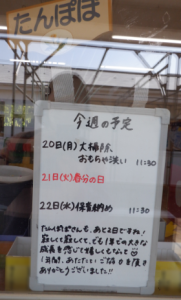 たんぽぽ
今週の予定
20日(月)大掃除、
おもちゃ洗い 11:30
21日(火)春分の日
22日(水)保育納め 11:30
たんぽぽさんも、あと2日ですね!
寂しくて寂しくて、でも1年での大きな
成長を感じて嬉しくもなって
1年間、あたたかい ご協力を頂き
ありがとうございました!!